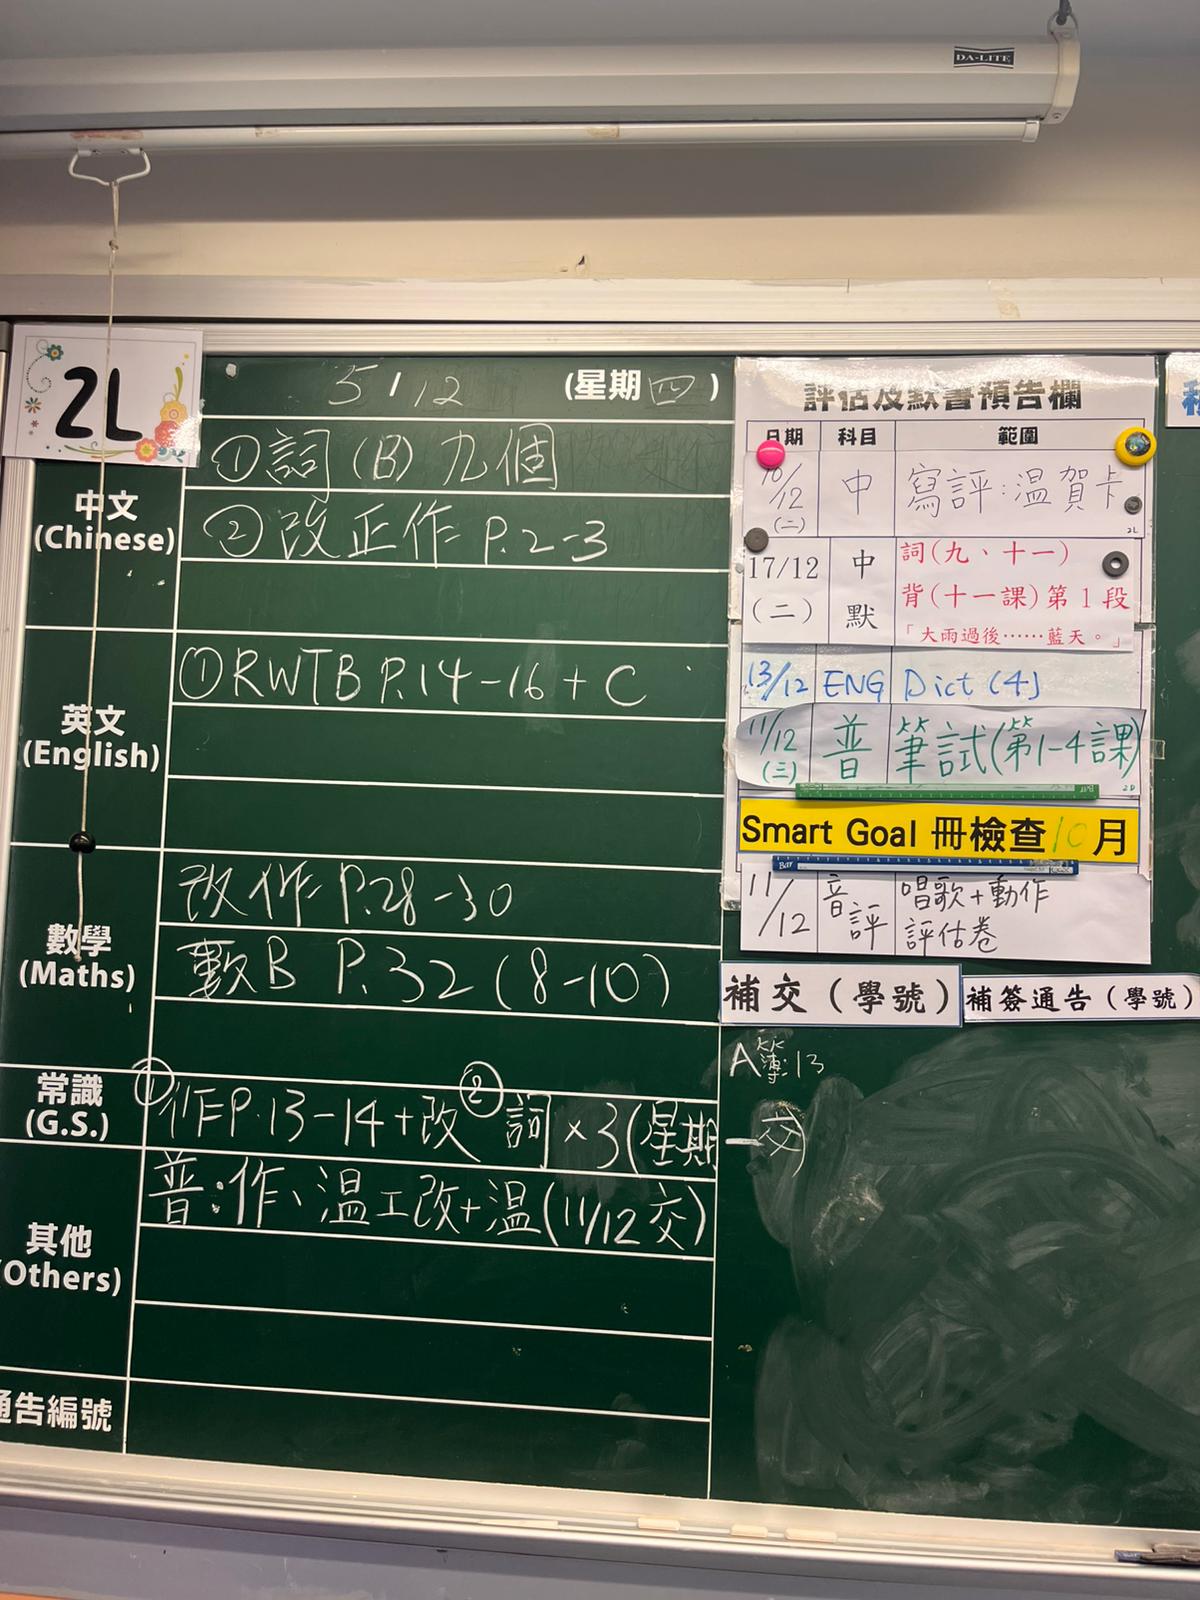 DA-LITE
2L
5/12 (星期四)
中文
(Chinese)
①詞(B) 九個
②改正作 P.2-3
英文
(English)
①RWTB P.14-16 + C
數學
(Maths)
改作 P.28-30
數B P.32 (8-10)
常識
(G.S.)
①作P.13-14+改 ②詞×3(星期一交)
其他
(Others)
普:作、溫工改+溫(11/12交)
通告編號
評估及默書預告欄
日期 科目 範圍
10/12 (二) 中 寫評:溫賀卡
2L
17/12 (二) 中默 詞(九、十一)
背(十一課)第1段
「大雨過後……藍天。」
13/12 ENG Dict (4)
11/12 (三) 普 筆試(第1-4課)
Smart Goal 冊檢查10月
11/12 音評 唱歌+動作
評估卷
補交(學號) 補簽通告(學號)
A簿:13